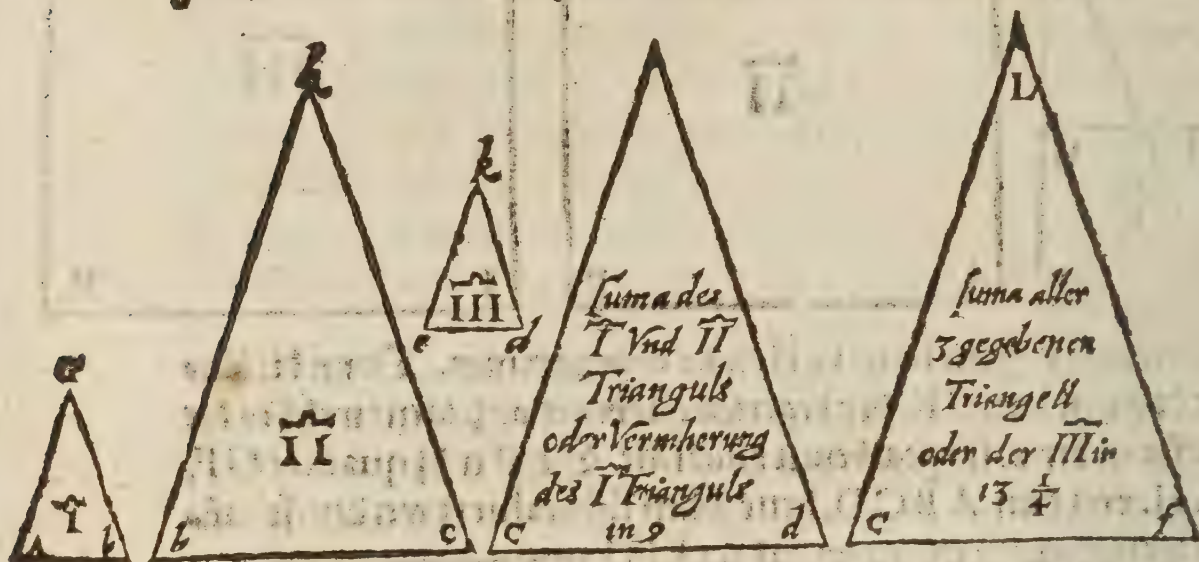 h
k
L
III
e d
a
I
b
II
b c
suma des
I Vnd II
Trianguls
oder Vermherung
des I Trianguls
in 9
C d
suma aller
3 gegebenen
Triangell
oder der III in
13 1/4
C f